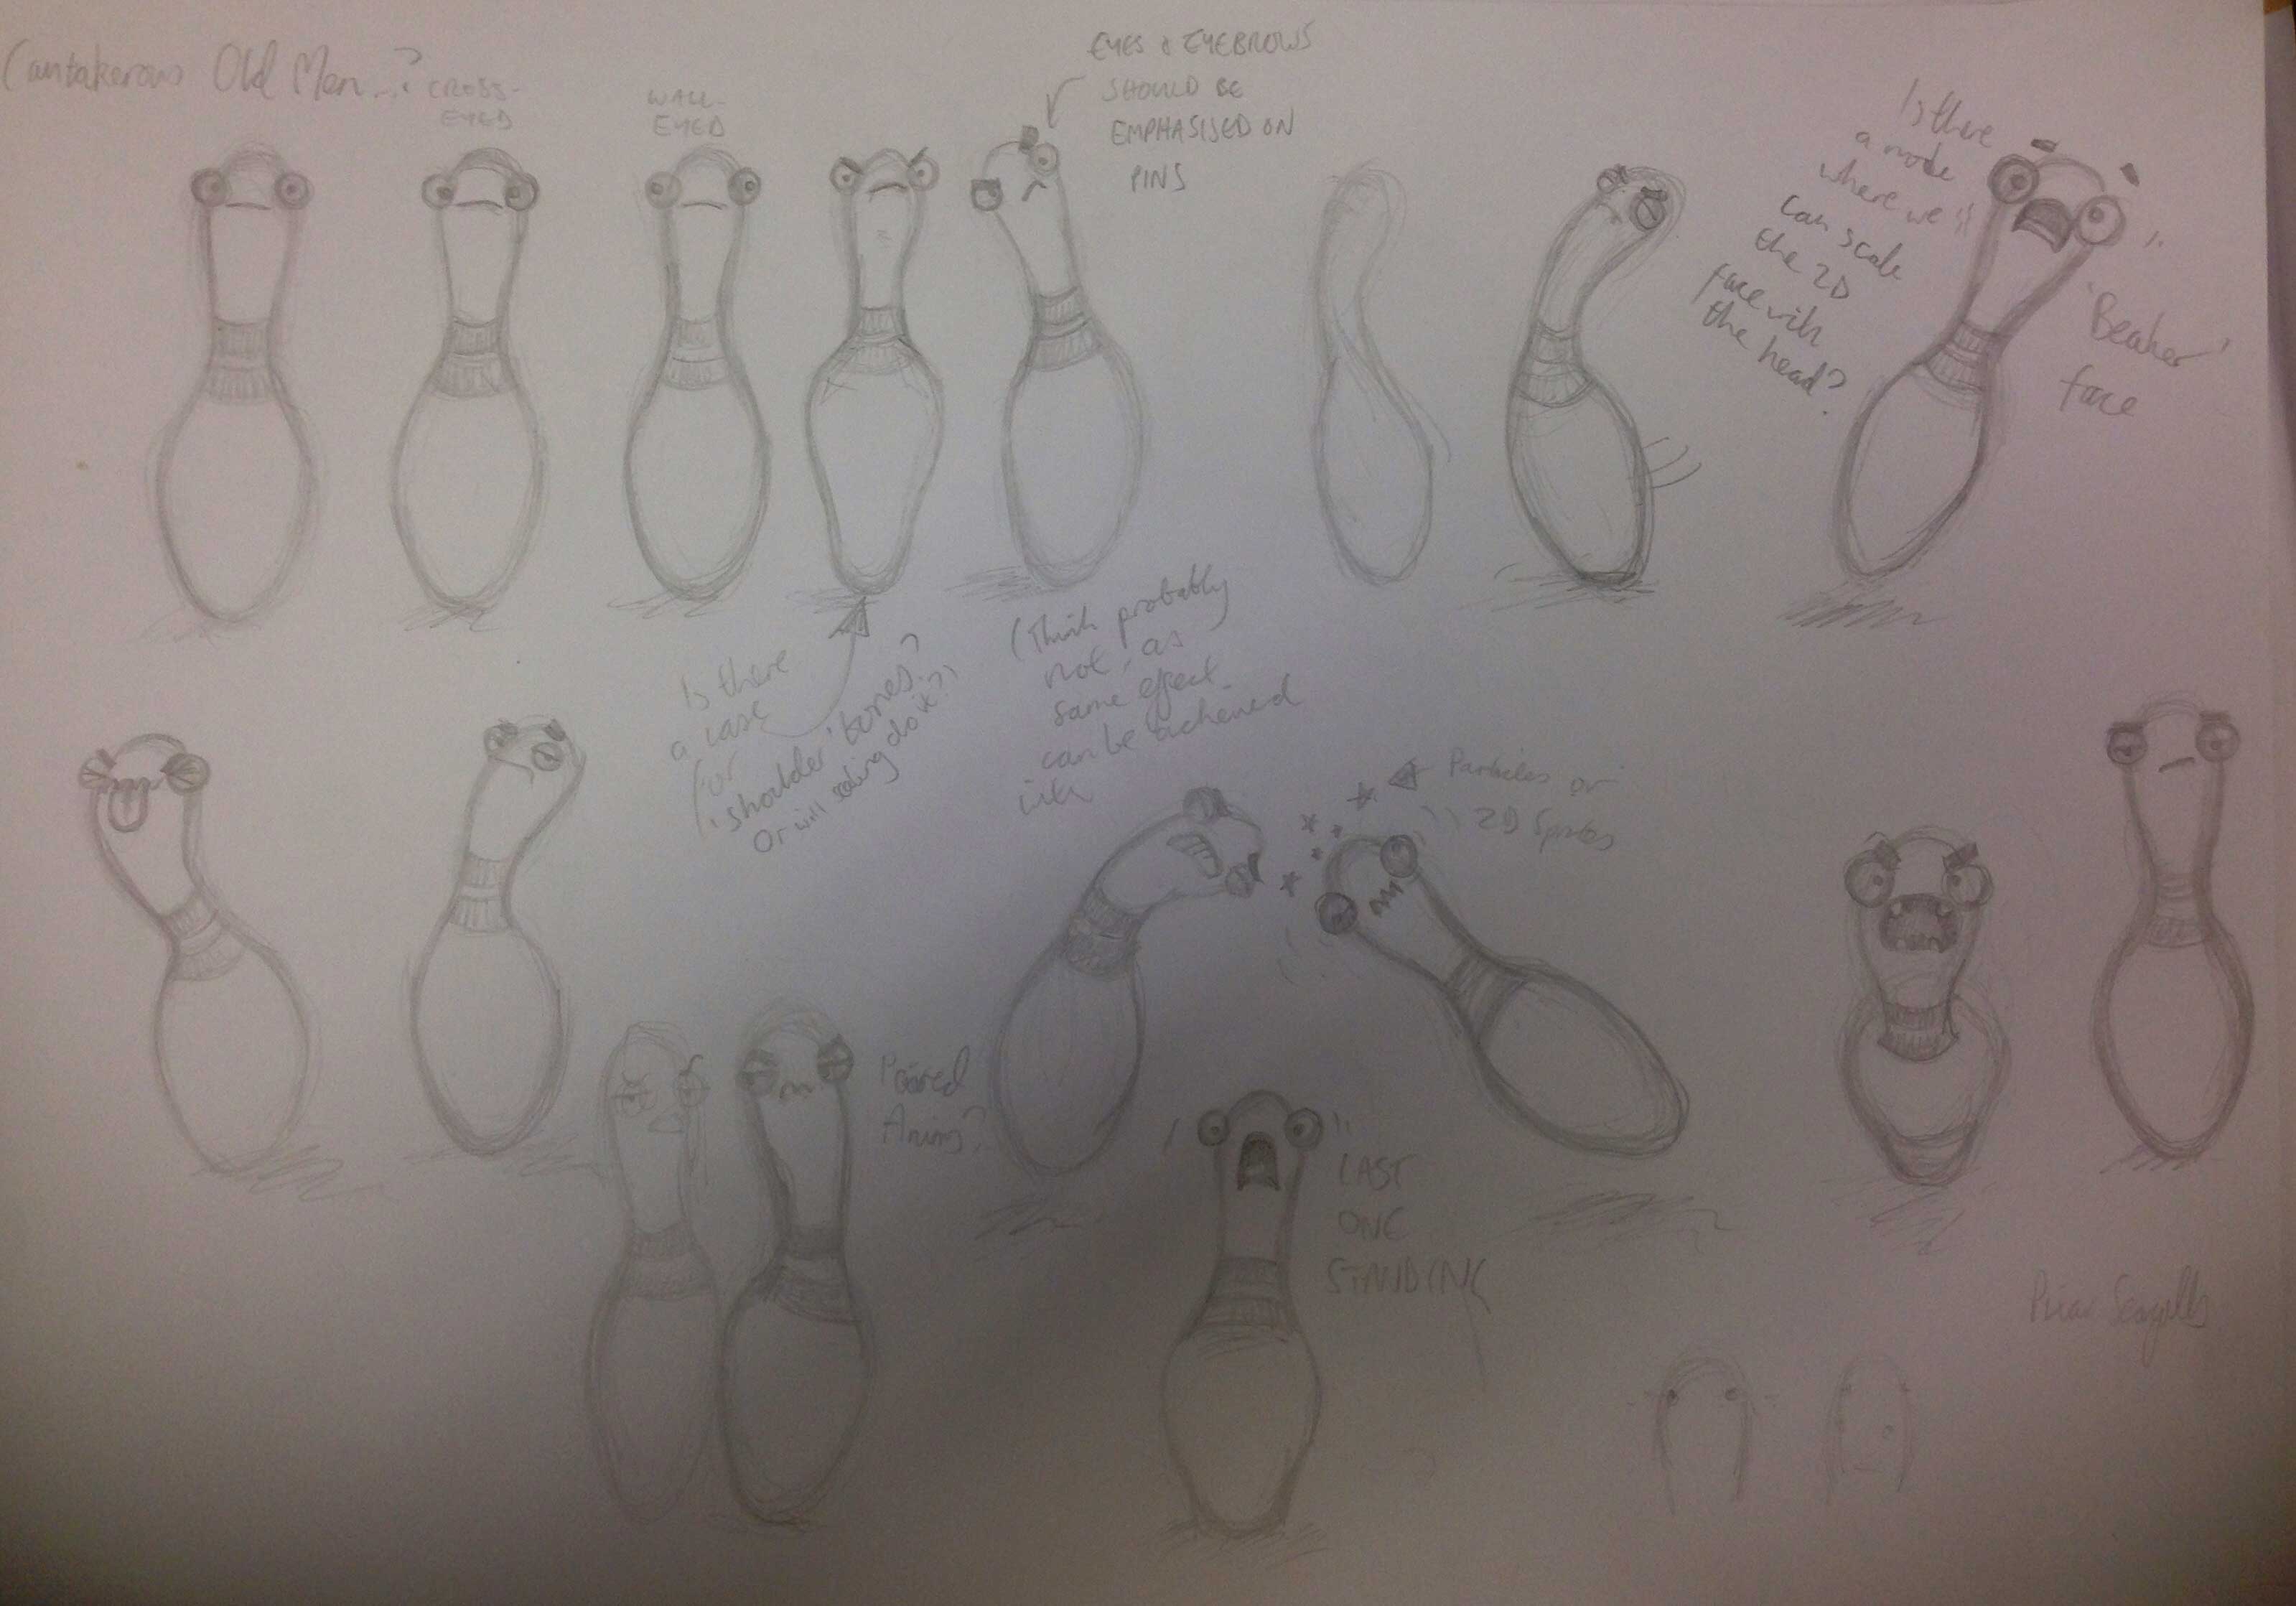 Cantakerous Old Men...?
CROSS-
EYED
WALL-
EYED
EYES & EYEBROWS
SHOULD BE
EMPHASISED ON
PINS
Is there
a node
where we
can scale
the 2D
face with
the head?
'Beaker'
face
Is there
a case
for
'shoulder' bones?
Or will scaling do it?
(Think probably
not, as
same effect
can be achieved
with
Particles or
2D Sprites
Paired
Anims?
LAST
ONE
STANDING
Pixar Seagulls